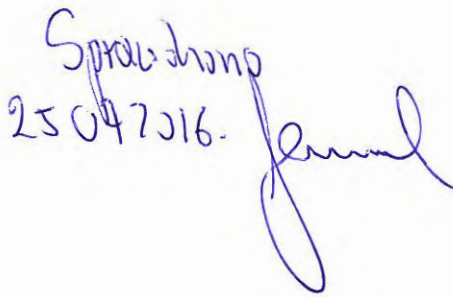 Sprawdzono
25 04 2016.